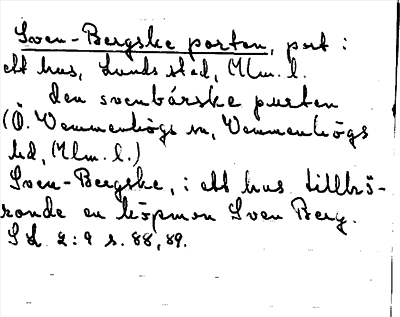 Sven-Bergske porten, port i
ett hus, Lunds stad, Mlm. l.
den svenbárske purten
(Ö. Vemmenhögs sn, Vemmenhögs
hd, Mlm. l.)
Sven-Bergske, i ett hus tillhö-
rande en köpman Sven Berg.
Sd 2:9 s. 88, 89.